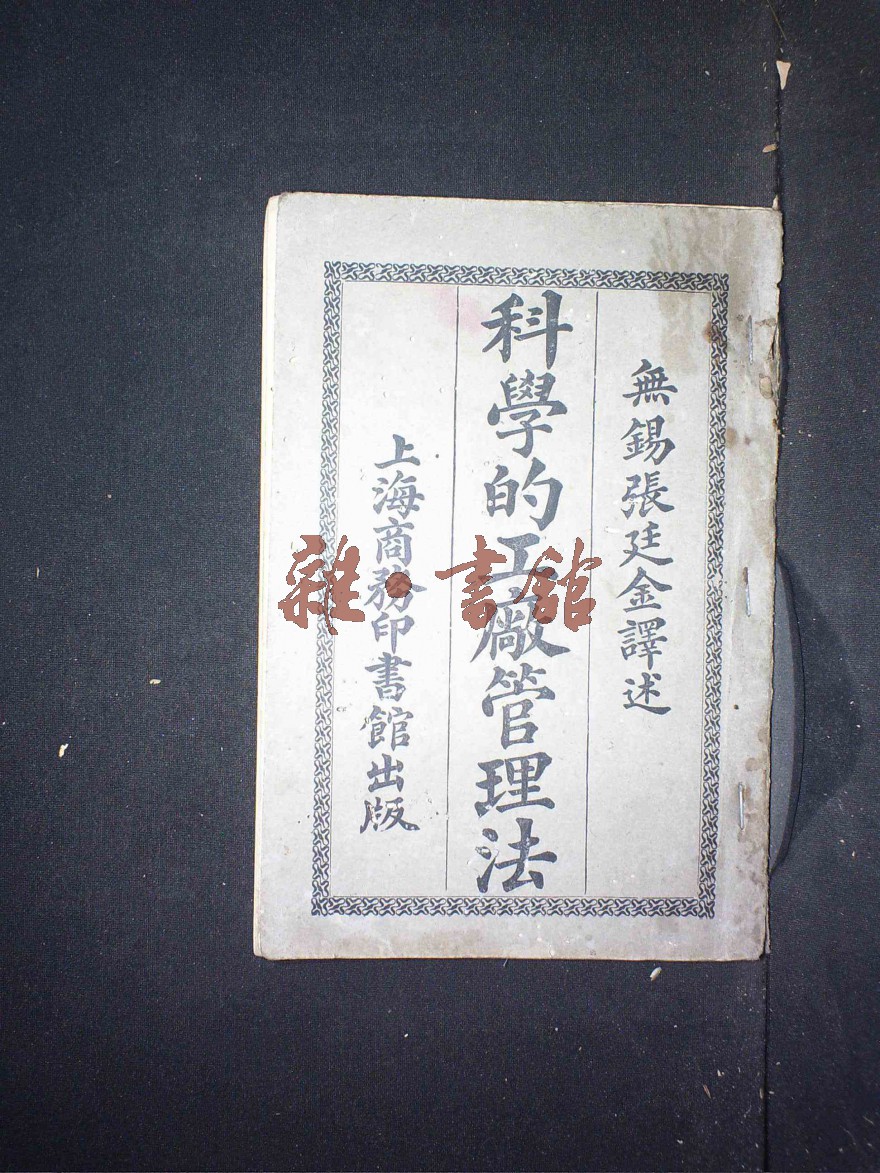 無錫張廷金譯述
科學的工廠管理法
上海商務印書館出版
雜·書館